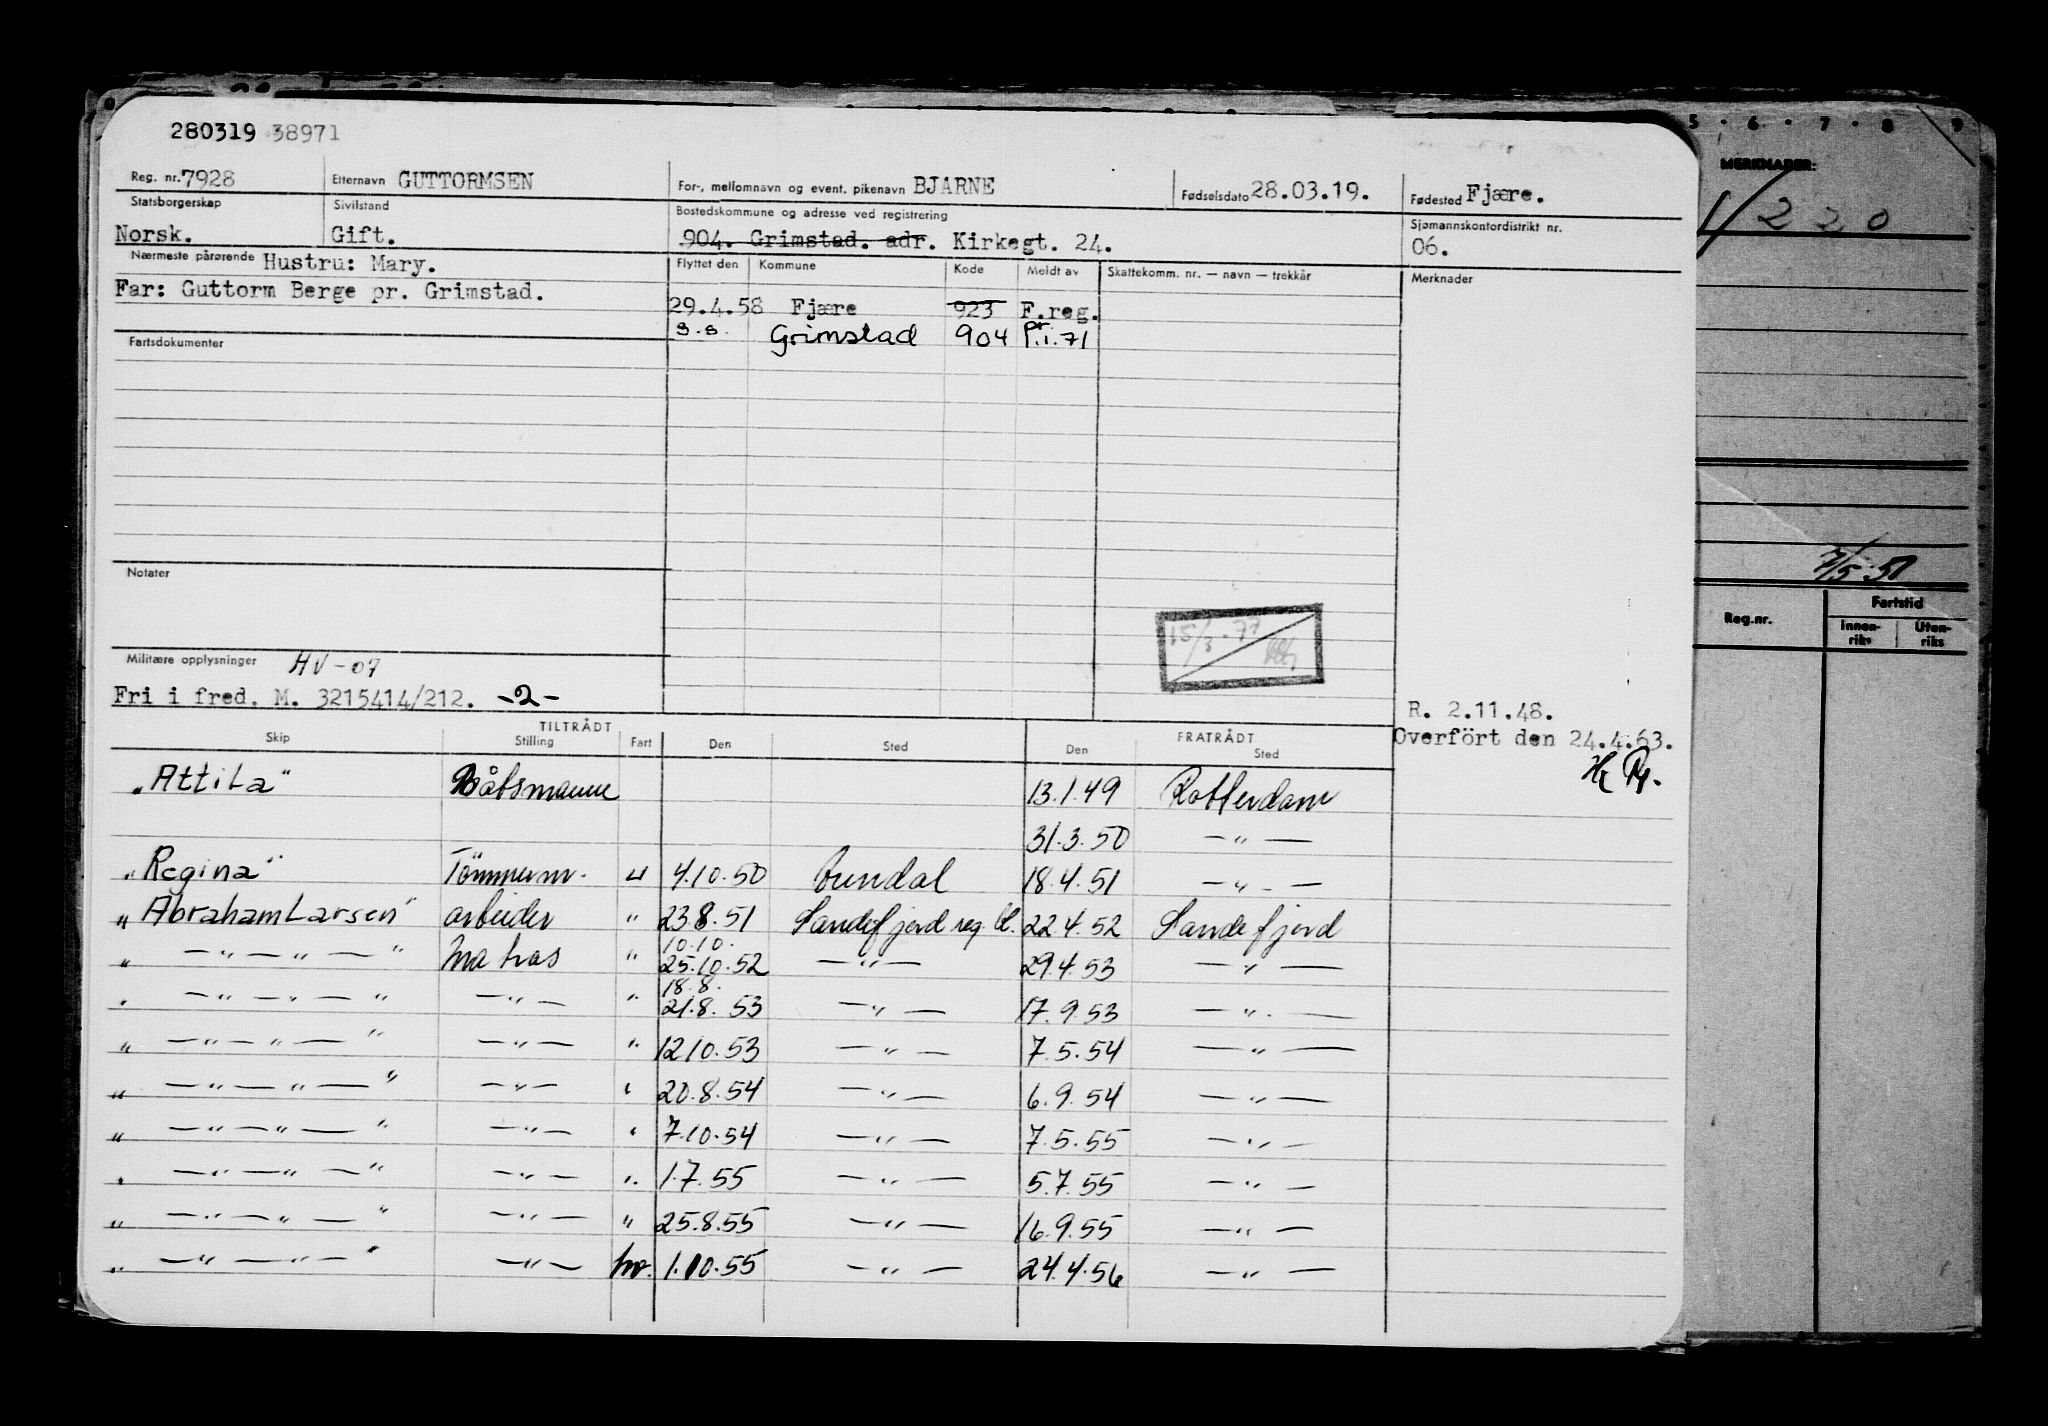 280319 38971
Reg. nr. 7928 Etternavn GUTTORMSEN For-, mellomnavn og event. pikenavn BJARNE Fødselsdato 28.03.19. Fødested Fjære.
Statsborgerskap Sivilstand Bostedskommune og adresse ved registrering Sjømannskontordistrikt nr.
Norsk. Gift. 904. Grimstad. adr. Kirkegt. 24. 06.
Nærmeste pårørende Hustru: Mary. Flyttet den Kommune Kode Meldt av Skattekomm. nr. — navn — trekkår Merknader
Far: Guttorm Berge pr. Grimstad.
29.4.58 Fjære 923 F.reg.
s.s. Grimstad 904 pr. 1.71
Fartsdokumenter
Notater
15/3.77
Militære opplysninger HV-07
Fri i fred. M. 3215414/212. -2-
R. 2.11.48.
Overfört den 24.4.63.
TILTRÅDT FRATRÅDT
Skip Stilling Fart Den Sted Den Sted
"Attila" Båtsmann 13.1.49 Rotterdam
31.3.50 — " —
"Regina" Tömmerm. u 4.10.50 18.4.51 — " —
"Abraham Larsen" arbeider " 23.8.51 Sandefjord reg. bl. 22.4.52 Sandefjord
" — " — " — " Matros " 10.10. 25.10.52 — " — 29.4.53 — " —
" — " — " — " — " — " 18.8. 21.8.53 — " — 17.9.53 — " —
" — " — " — " — " — " 12.10.53 — " — 7.5.54 — " —
" — " — " — " — " — " 20.8.54 — " — 6.9.54 — " —
" — " — " — " — " — " 7.10.54 — " — 7.5.55 — " —
" — " — " — " — " — " 1.7.55 — " — 5.7.55 — " —
" — " — " — " — " — " 25.8.55 — " — 16.9.55 — " —
" — " — " — " — " — hv. 1.10.55 — " — 24.4.56 — " —
5 . 6 . 7 . 8 . 9
MERKNADER:
220
7/5.51
Reg.nr. Fartstid
Innen-riks Uten-riks